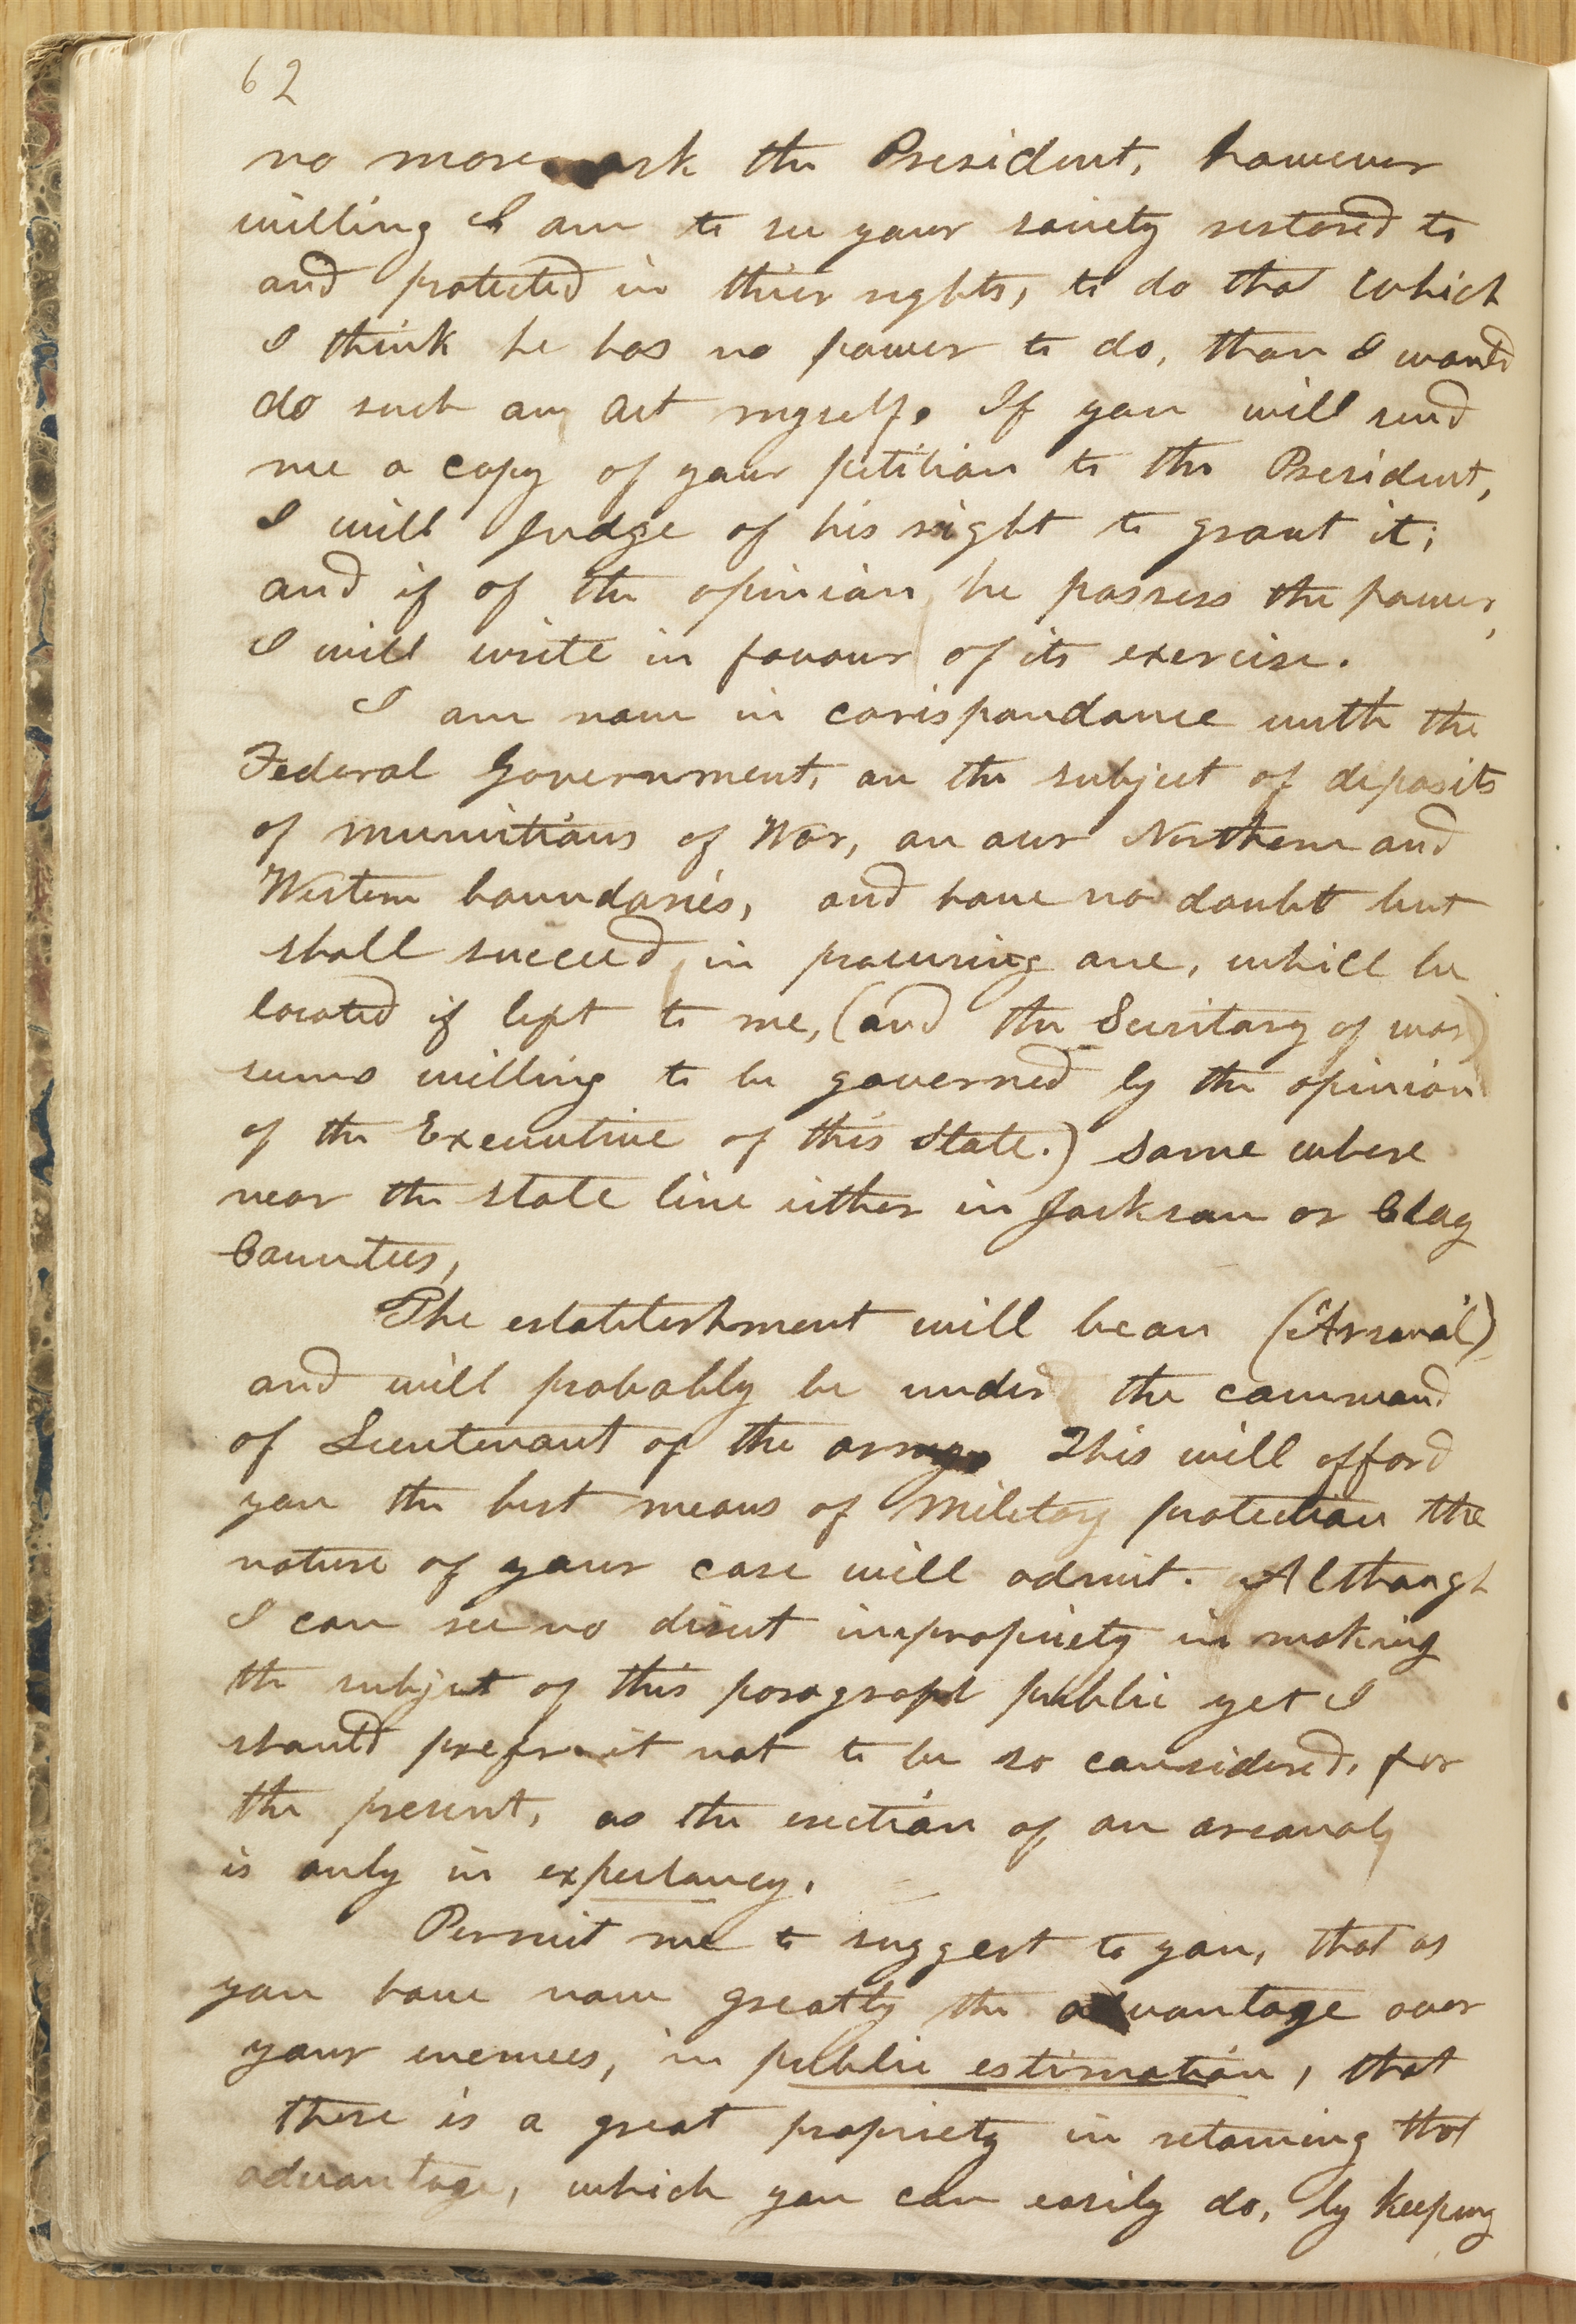 62
no more ask the President, however
willing I am to see your society restored to
and protected in thier rights, to do that which
I think he has no power to do, than I would
do such an act myself. If you will send
me a copy of your petition to the President,
I will judge of his right to grant it;
and if of the opinion he possess the power,
I will write in favour of its exercise.
I am now in corispondance with the
Federal Government, on the subject of deposits
of munitions of War, on our Northern and
Western boundaries, and have no doubt but
shall succeed in procuring one, whill be
located if left to me, (and the Secritary of war)
seems willing to be governed by the opinion
of the Executive of this State.) some where
near the state line either in Jackson or Clay
Countees,
The establishment will be an (Arsenal)
and will probably be under the command
of Lieutenant of the army. This will afford
you the best means of Military protection the
nature of your case will admit. Although
I can see no direct impropriety in making
the subject of this paragraph public yet I
should prefer it not to be so considered, for
the present, as the erection of an arsanal,
is only in expectancy.
Permit me to suggest to you, that as
you have now greatly the advantage over
your enemies, in public estimation, that
there is a great propriety in retaining that
advantage, which you can easily do, by keeping